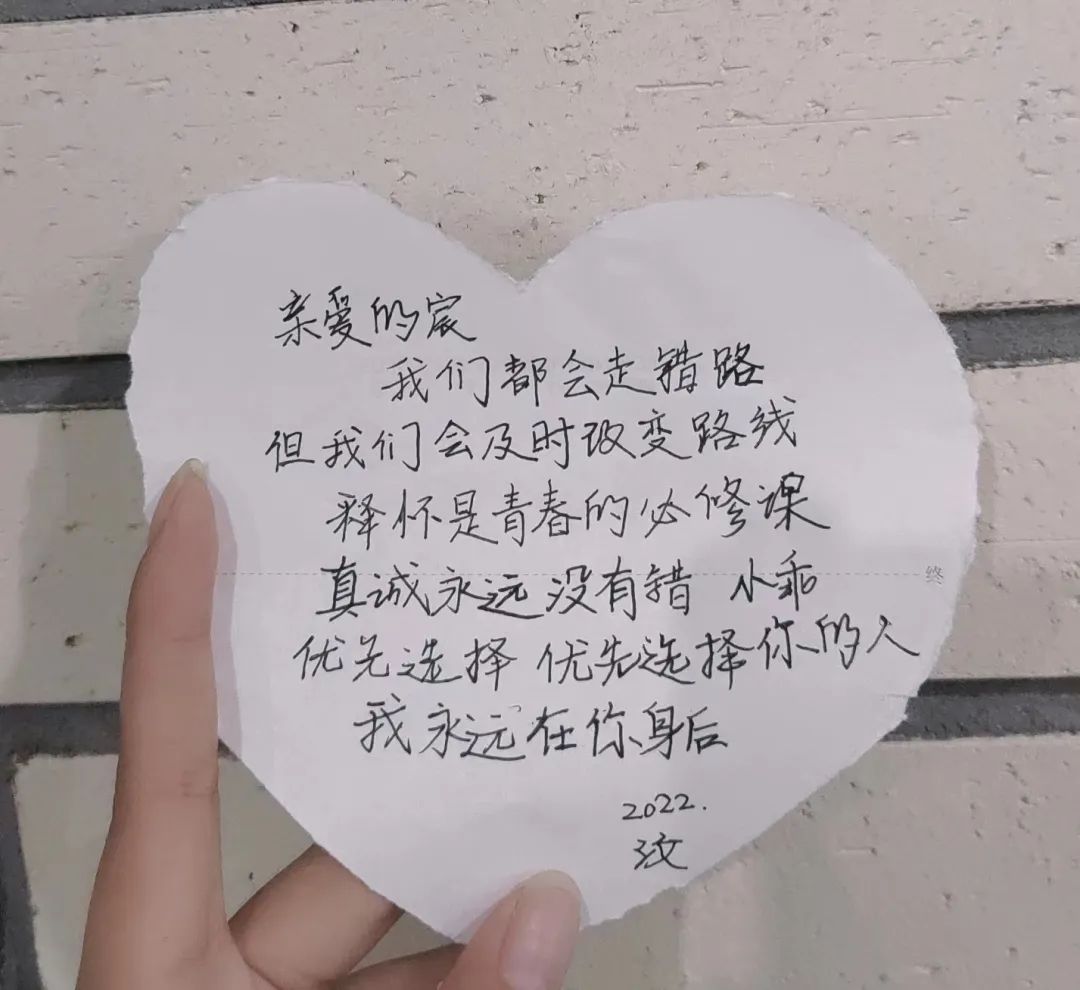 亲爱的宸
我们都会走错路
但我们会及时改变路线
释怀是青春的必修课
真诚永远没有错 小乖
终
优先选择 优先选择你的人
我永远在你身后
2022.
汶